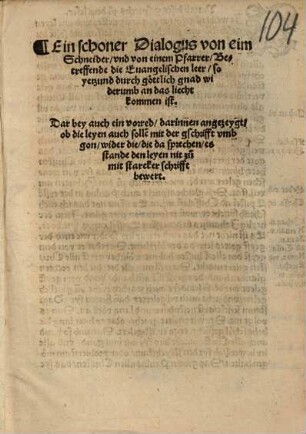 104
¶ Ein schoner Dialogus von eim
Schneider/vnd von einem Pfarrer/Be⸗
treffende die Euangelischen leer/ so
yetzund durch göttlich gnad wi
derumb an das liecht
kommen ist.
Dar bey auch ein vorred/ darinnen angezeygt/
ob die leyen auch sollē mit der gschrifft vmb
gon/wider die/die da sprechen/es
stande den leyen nit zů
mit starcker schrifft
bewert.